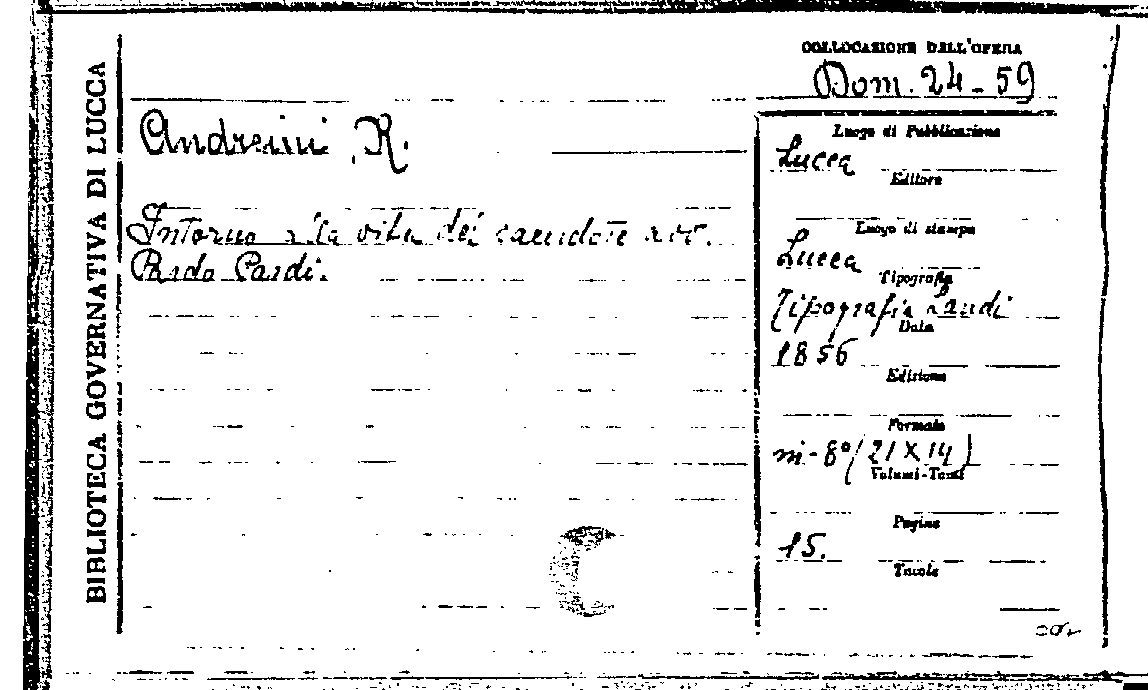 BIBLIOTECA GOVERNATIVA DI LUCCA
COLLOCAZIONE DELL'OPERA
Dom. 24-59
Andreini, R.
Intorno alla vita del sacerdote avv.
Pardi.
Luogo di Pubblicazione
Lucca
Editore
Luogo di stampa
Lucca
Tipografia
Tipografia Landi
Data
1856
Edizione
Formato
in-8° (21 X 14)
Volumi-Tomi
Pagine
15.
Tavole
C